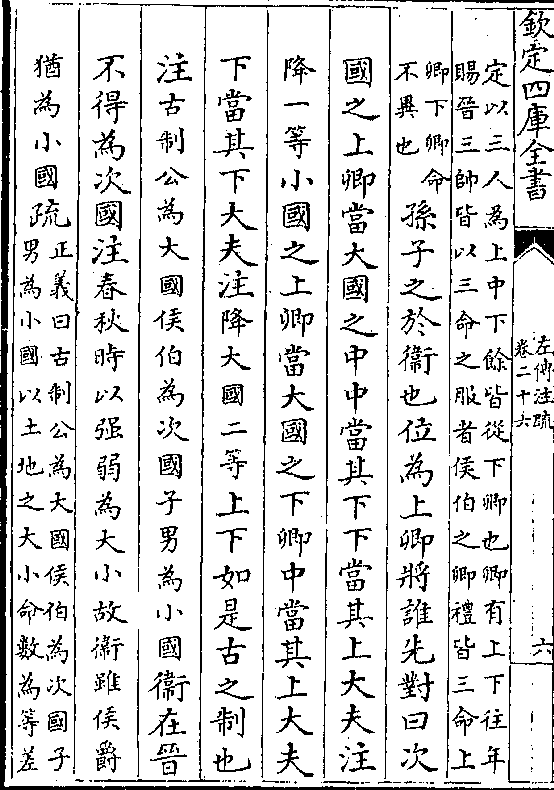 欽定四庫全書
左傳注疏
卷二十六
六
定以三人為上中下餘皆從下卿也卿有上下往年
賜晉三帥皆以三命之服者侯伯之卿禮皆三命上
卿下卿命
不異也
孫子之於衞也位為上卿將誰先對曰次
國之上卿當大國之中中當其下下當其上大夫注
降一等小國之上卿當大國之下卿中當其上大夫
下當其下大夫注降大國二等上下如是古之制也
注古制公為大國侯伯為次國子男為小國衞在晉
不得為次國注春秋時以强弱為大小故衞雖侯爵
猶為小國疏
正義曰古制公為大國侯伯為次國子
男為小國以土地之大小命數為等差